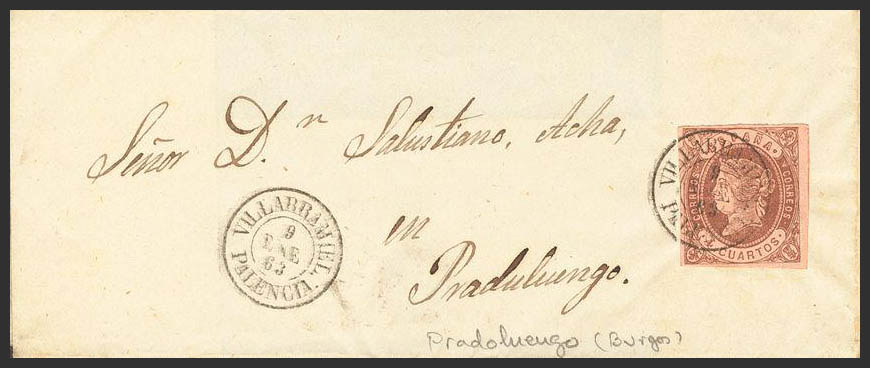 Señor D.n Salustiano, Acha,
en
Praduluengo.
Pradoluengo (Burgos)
VILLARRAMIEL
9
ENE
63
PALENCIA.
CORREOS
CORREOS
CUARTOS